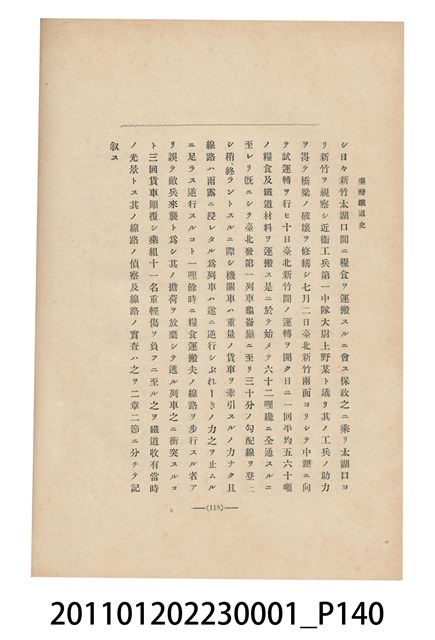 臺灣鐵道史
シ日々新竹太湖口間ニ糧食ヲ運搬スルニ會ス保政之ニ乘リ太湖口ヨ
リ新竹ヲ視察シ近衞工兵第一中隊大尉上野某ト議リ其ノ工兵ノ助力
ヲ得テ橋梁ノ破壞ヲ修繕シ七月二日臺北新竹兩面ヨリシテ中壢ニ向
テ試運轉ヲ行ヒ十日臺北新竹間ノ運轉ヲ開ク日ニ一回平均五六十噸
ノ糧食及鐵道材料ヲ運搬ス是ニ於テ始メテ六十二哩纔ニ全通スルニ
至レリ旣ニシテ臺北發第一列車龜崙嶺ニ至リ三十分ノ勾配線ヲ登ニ
シ稍終ラントスルニ際シ機關車ハ重量ノ貨車ヲ牽引スルノ力ナク且
線路ハ雨露ニ浸レタル爲列車ハ遂ニ逆行シぶれーきノ力之ヲ止ムル
ニ足ラス逆行スルコト一哩餘時ニ糧食運搬夫ノ線路ヲ步行スル者ア
リ誤テ敵兵來襲ト爲シ其ノ擔荷ヲ放棄シテ逃ル列車之ニ衝突スルコ
ト三回貨車顚覆シ乘組十一名重輕傷ヲ負フニ至ル之ヲ鐵道收有當時
ノ光景トス其ノ線路ノ偵察及線路ノ實査ハ之ヲ二章二節ニ分チテ記
叙ス
(118)
201101202230001_P140